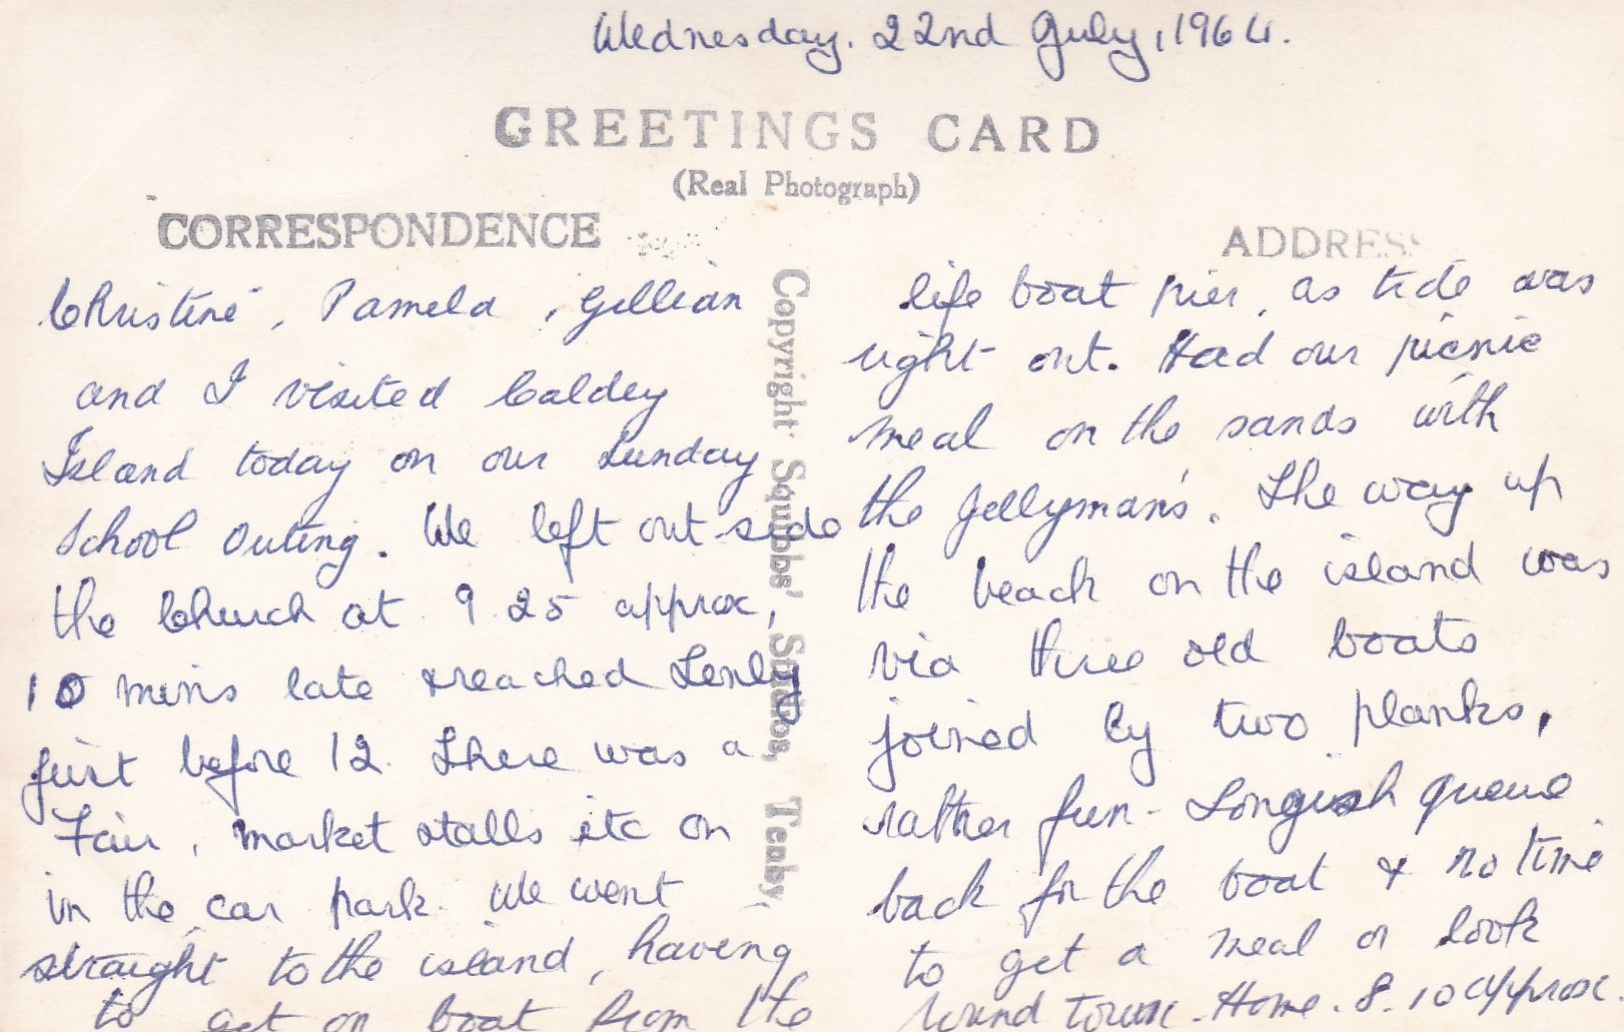 Wednesday. 22nd July, 1964.
GREETINGS CARD
(Real Photograph)
CORRESPONDENCE
ADDRESS
Christine, Pamela, Gillian
and I visited Caldey
Island today on our Sunday
School Outing. We left out side
the Church at 9.25 approx,
10 mins late & reached Tenby
just before 12. There was a
Fair, market stalls etc on
in the car park. We went
straight to the island, having
to get on boat from the
Copyright Squibbs' Studios, Tenby.
life boat pier, as tide was
right out. Had our picnic
meal on the sands with
the Jellyman's. The way up
the beach on the island was
via three old boats
joined by two planks,
rather fun - Longish queue
back for the boat & no time
to get a meal or look
round town. Home. 8.10 approx.